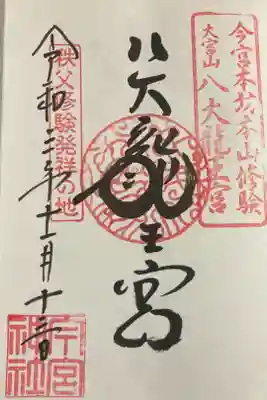 今宮本坊本山修験
大宮山 八大龍王宮
八大龍王宮
秩父修験発祥の地
令和三年十二月十三日
今宮神社